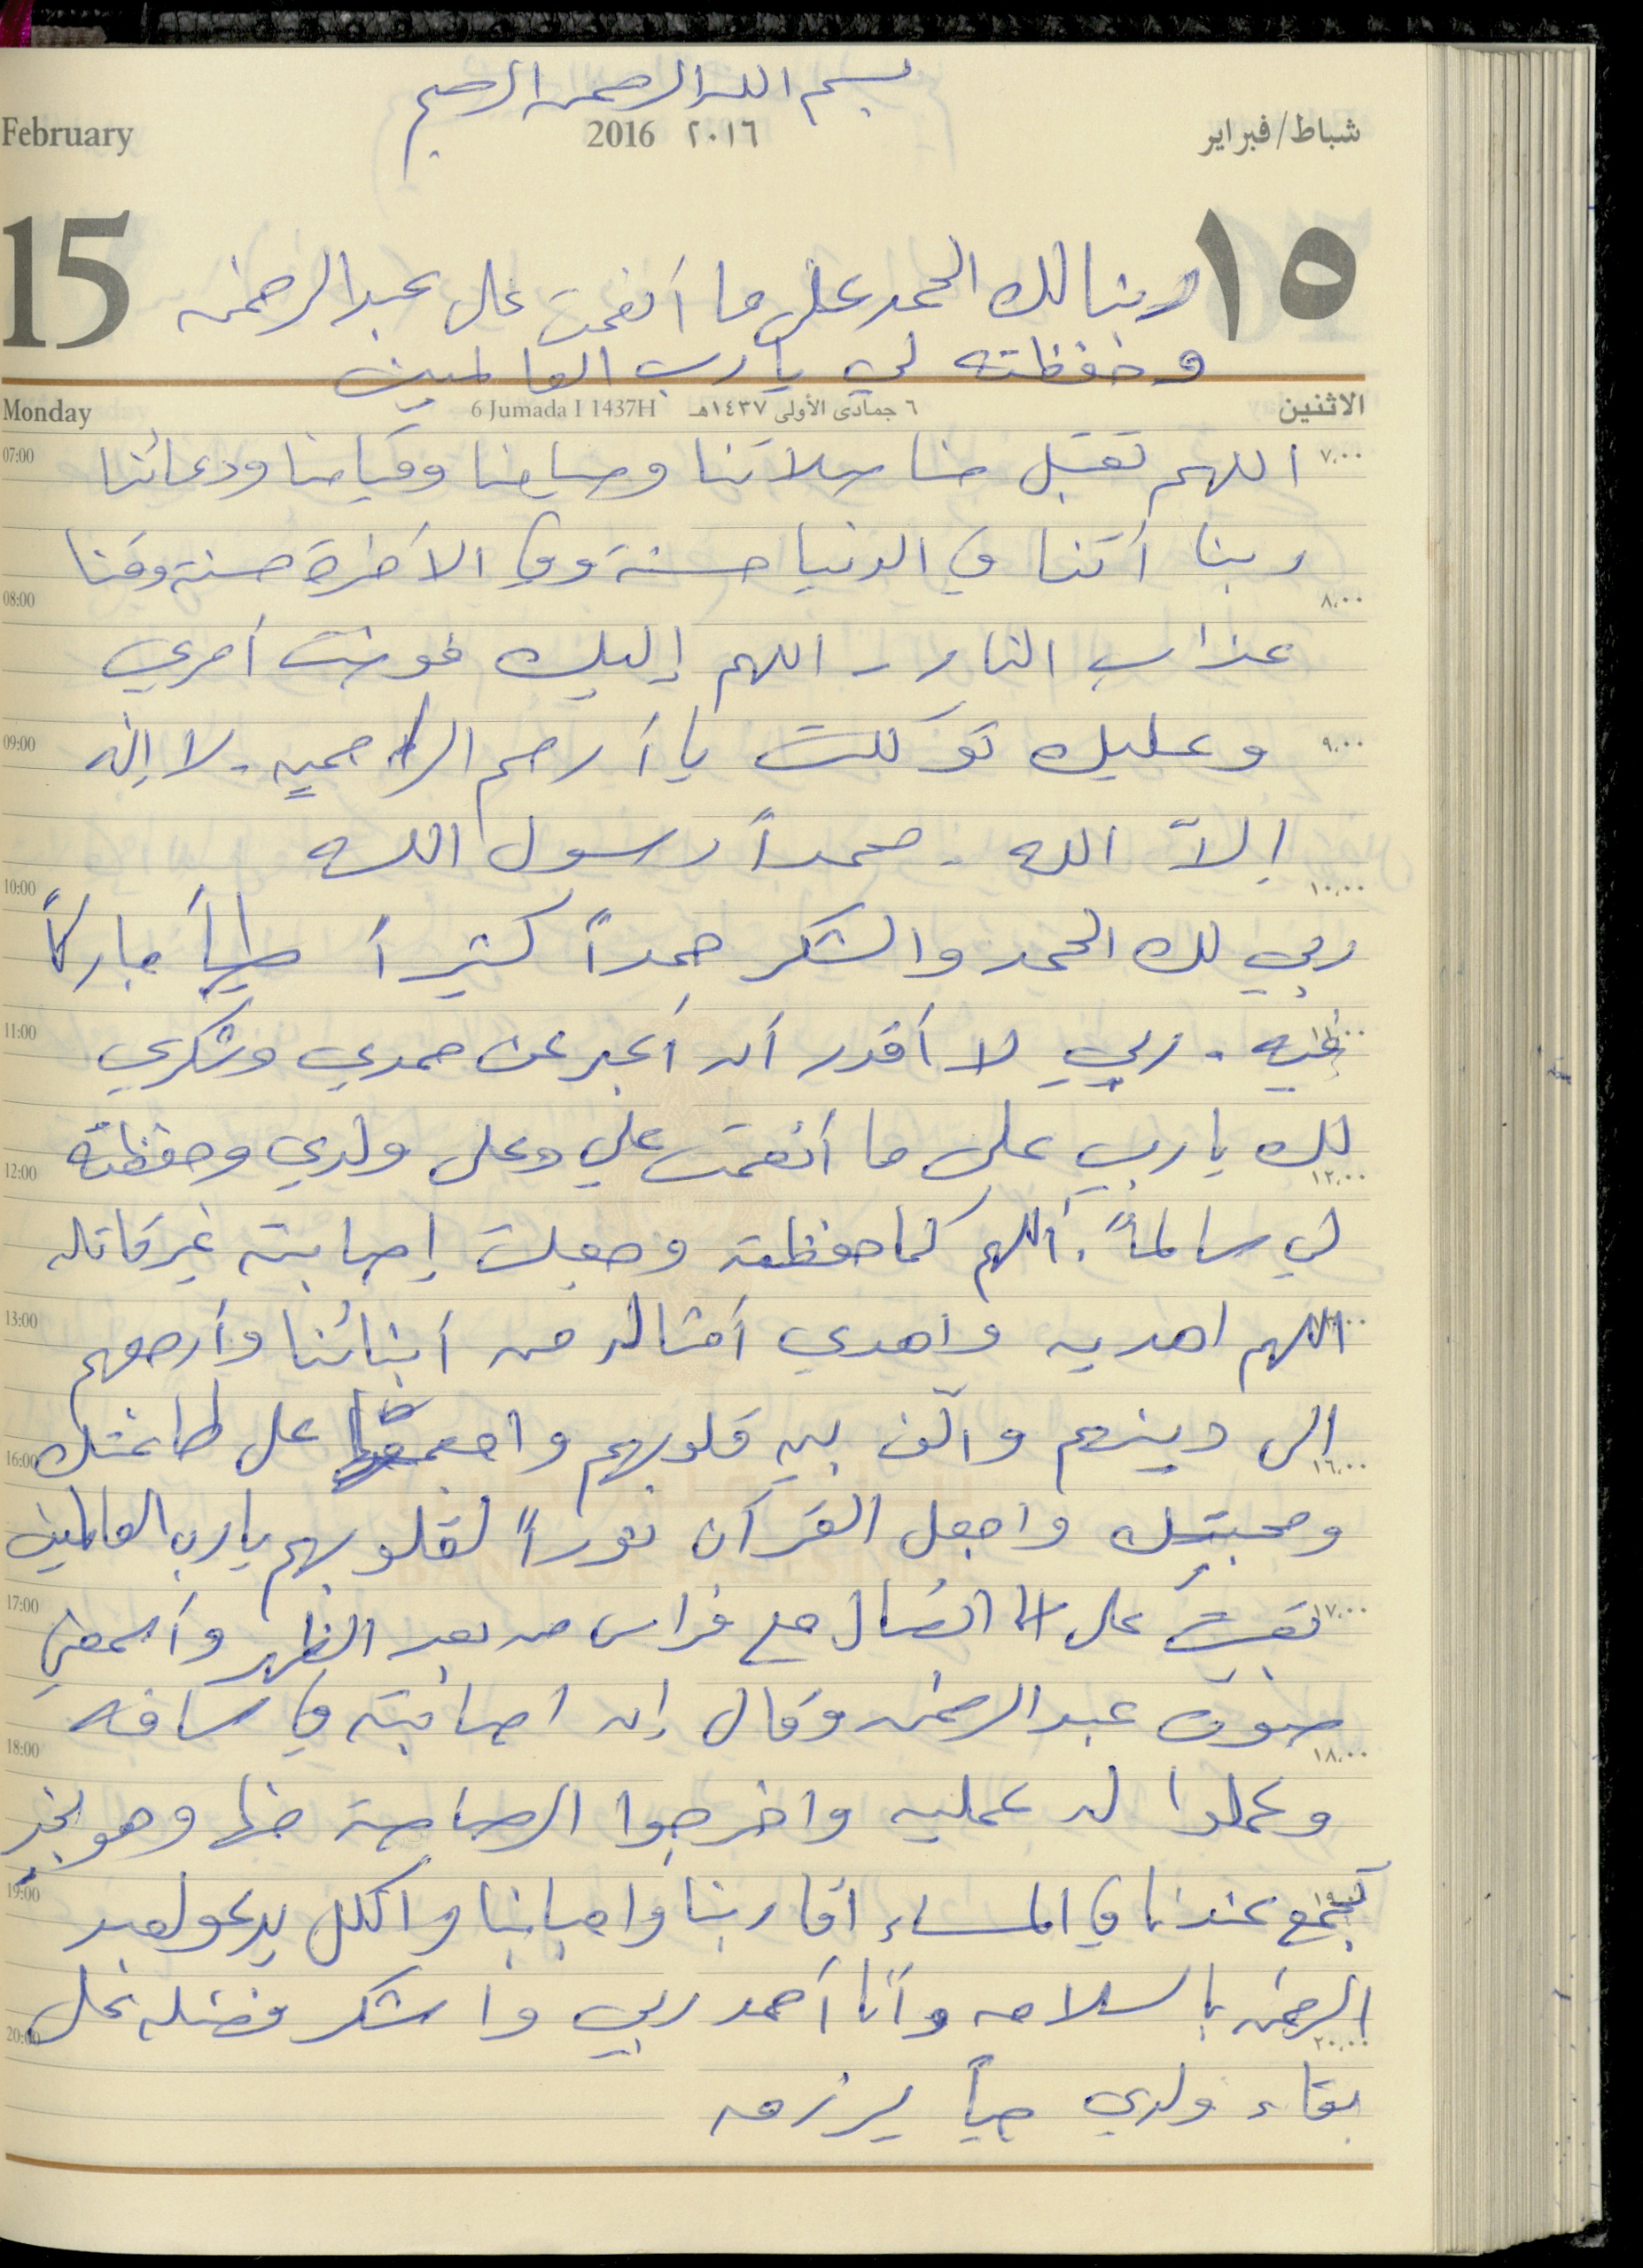 بسم الله الرحمن الرحيم
February 2016 ٢٠١٦ شباط/فبراير
15 ١٥
ربنا لك الحمد على ما أنعمت على عبد الرحمن
وحفظته لي يا رب العالمين
Monday 6 Jumada I 1437H ٦ جمادى الأولى ١٤٣٧هـ الاثنين
07:00 اللهم تقبل منا صلاتنا وصيامنا وقيامنا ودعائنا ٧,٠٠
ربنا آتنا في الدنيا حسنة وفي الآخرة حسنة وقنا
08:00 ٨,٠٠
عذاب النار - اللهم إليك فوضت أمري
09:00 وعليك توكلت يا أرحم الراحمين - لا إله ٩,٠٠
إلاّ الله - محمداً رسول الله
10:00 ١٠,٠٠
ربي لك الحمد والشكر حمداً كثيراً طيباً مباركاً
11:00 فيه . ربي لا أقدر أن أعبر عن حمدي وشكري ١١,٠٠
لك يا ربي على ما أنعمت علي وعلى ولدي وحفظته
12:00 ١٢,٠٠
لي سالماً . اللهم كما حفظته وجعلت إصابته غير قاتله
13:00 اللهم اهديه واهدي أمثاله من أبنائنا وأرجعهم
الى دينهم والّف بين قلوبهم على طاعتك
16:00 ١٦,٠٠
ومحبتك واجعل القرآن نوراً لقلوبهم يا رب العالمين
BANK OF PALESTINE
17:00 على اتصال مع فراس من بعد الظهر وأسمعني ١٧,٠٠
صوت عبد الرحمن وقال إن اصابته في ساقه
18:00 ١٨,٠٠
وعملوا له عمليه واخرجوا الرصاصة منها وهو بخير
19:00 تجمع عندنا في المساء اقاربنا واحبابنا والكل يدعو لعبد
الرحمن بالسلامه وأنا أحمد ربي واشكر فضله على
20:00 ٢٠,٠٠
بقاء ولدي حياً يرزق